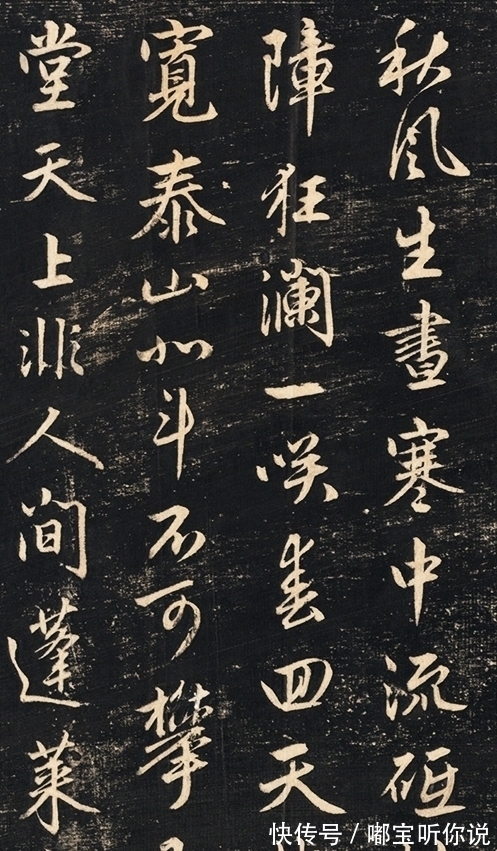 秋風生晝寒中流砥
障狂瀾一咲春回天
寬泰山北斗不可攀
堂天上非人間蓬萊
快传号 / 嘟宝听你说